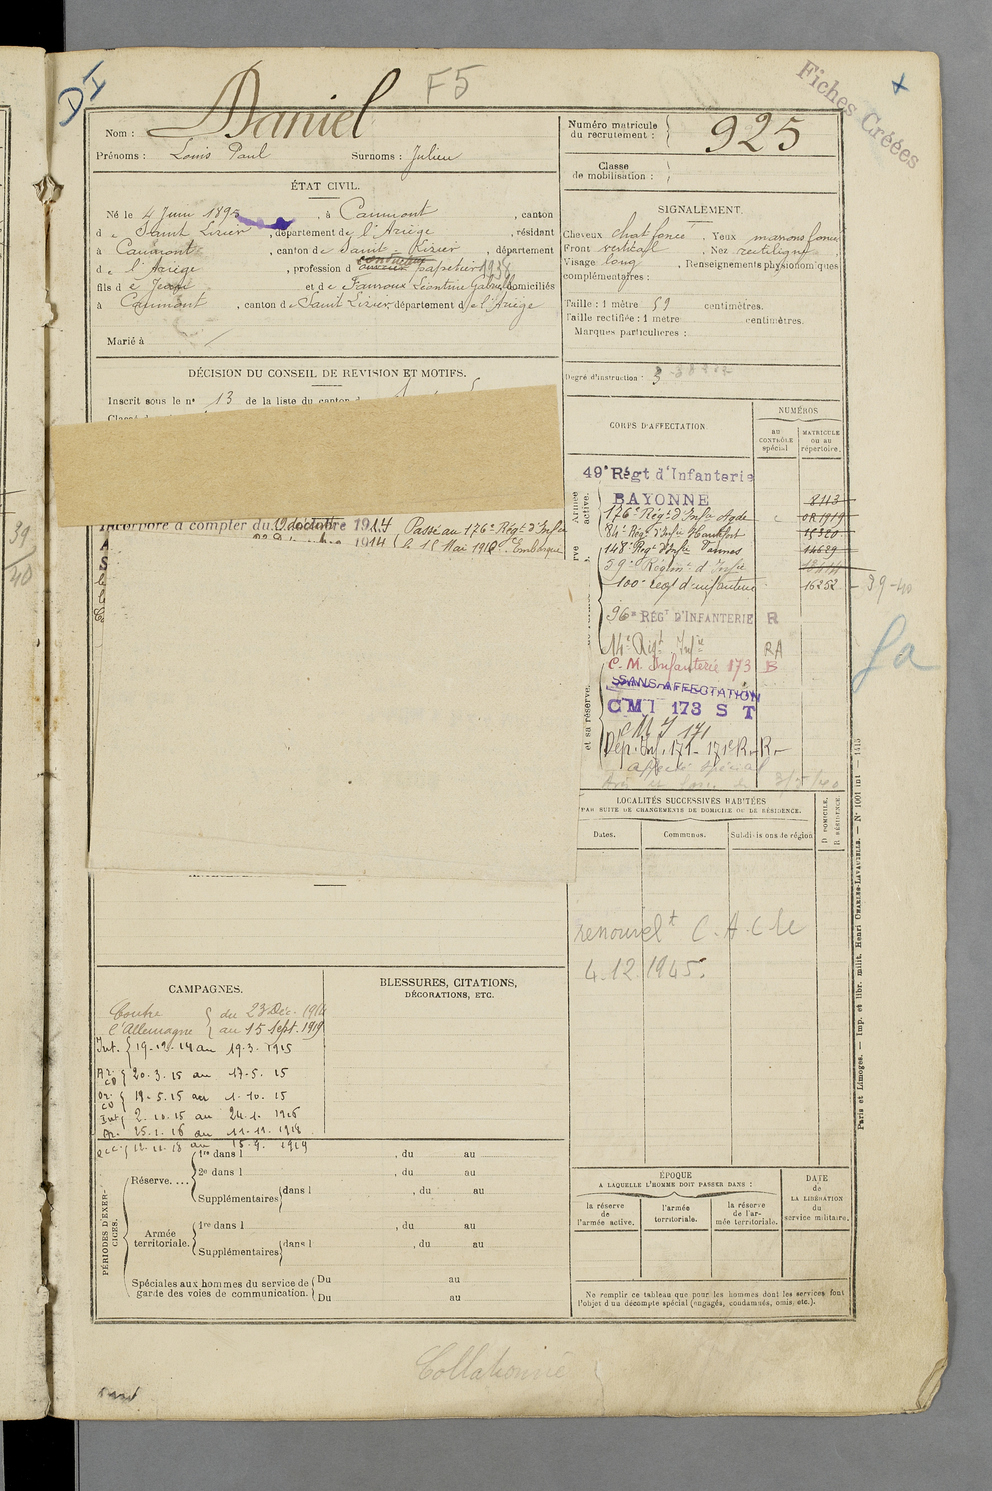 D I
F5
Fiches Créées
Nom : Daniel
Prénoms : Louis Paul Surnoms : Julien
Numéro matricule du recrutement : 925
Classe de mobilisation :
ÉTAT CIVIL.
Né le 4 Juin 1895, à Caumont, canton
de Saint Lizier, département de l'Ariège, résidant
à Caumont, canton de Saint-Lizier, département
de l'Ariège, profession d papetier
fils de Jean et de Fauroux Léontine Gabrielle domiciliés
à Caumont, canton de Saint Lizier, département de l'Ariège
Marié à
SIGNALEMENT.
Cheveux chat. foncé. Yeux marrons foncé
Front vertical. Nez rectiligne
Visage long. Renseignements physionomiques
complémentaires :
Taille : 1 mètre 59 centimètres.
Taille rectifiée : 1 mètre centimètres.
Marques particulières :
Degré d'instruction : 3
DÉCISION DU CONSEIL DE REVISION ET MOTIFS.
Inscrit sous le n° 13 de la liste du canton d
Incorporé à compter du 1914 Passé au 176e Régt d'Infie
1914 le 15 Mai 191 Embarqué
CORPS D'AFFECTATION.
NUMÉROS
AU CONTRÔLE spécial
MATRICULE ou au répertoire.
49e Régt d'Infanterie
BAYONNE 8113
176e Régt d'Infie Agde OR 1919
84e Régt d'Infie 15320
148e Régt d'Infie Vannes 14629
59e Régimt d'Infie
100e Régt d'infanterie 16252
39-40
96e RÉGT D'INFANTERIE R
14e Régt Infie RA
C. M. Infanterie 173 B
SANS AFFECTATION
CMI 173 S T
C M I 171
Dép. Inf. 171 - 171e R.R.
affecté spécial
fa
39
40
LOCALITÉS SUCCESSIVES HABITÉES
PAR SUITE DE CHANGEMENTS DE DOMICILE OU DE RÉSIDENCE.
Dates. Communes. Subdivisions de région
D. DOMICILE. R. RÉSIDENCE.
renouvelt C.A.C le
4.12.1945.
CAMPAGNES.
Contre l'Allemagne { du 23 Déc. 1914
au 15 Sept. 1919
Int. { 19-12-14 au 19-3-1915
Ar. CD { 20.3.15 au 17-5.15
Or. CD { 19.5.15 au 1.10.15
Int { 2.10.15 au 24.1.1916
Ar. { 25.1.16 au 11.11.1918
occ. { 12-11-18 au 15.9.1919
BLESSURES, CITATIONS,
DÉCORATIONS, ETC.
PÉRIODES D'EXERCICES.
Réserve....
1re dans l , du au
2e dans l , du au
Supplémentaires dans l , du au
Armée territoriale.
1re dans l , du au
Supplémentaires dans l , du au
Spéciales aux hommes du service de garde des voies de communication. Du au
Du au
ÉPOQUE
A LAQUELLE L'HOMME DOIT PASSER DANS :
la réserve de l'armée active.
l'armée territoriale.
la réserve de l'armée territoriale.
DATE de LA LIBÉRATION du service militaire.
Ne remplir ce tableau que pour les hommes dont les services font
l'objet d'un décompte spécial (engagés, condamnés, omis, etc.).
Paris et Limoges. — Imp. et libr. milit. Henri CHARLES-LAVAUZELLE. — N° 1001 int — 1415
Collationné